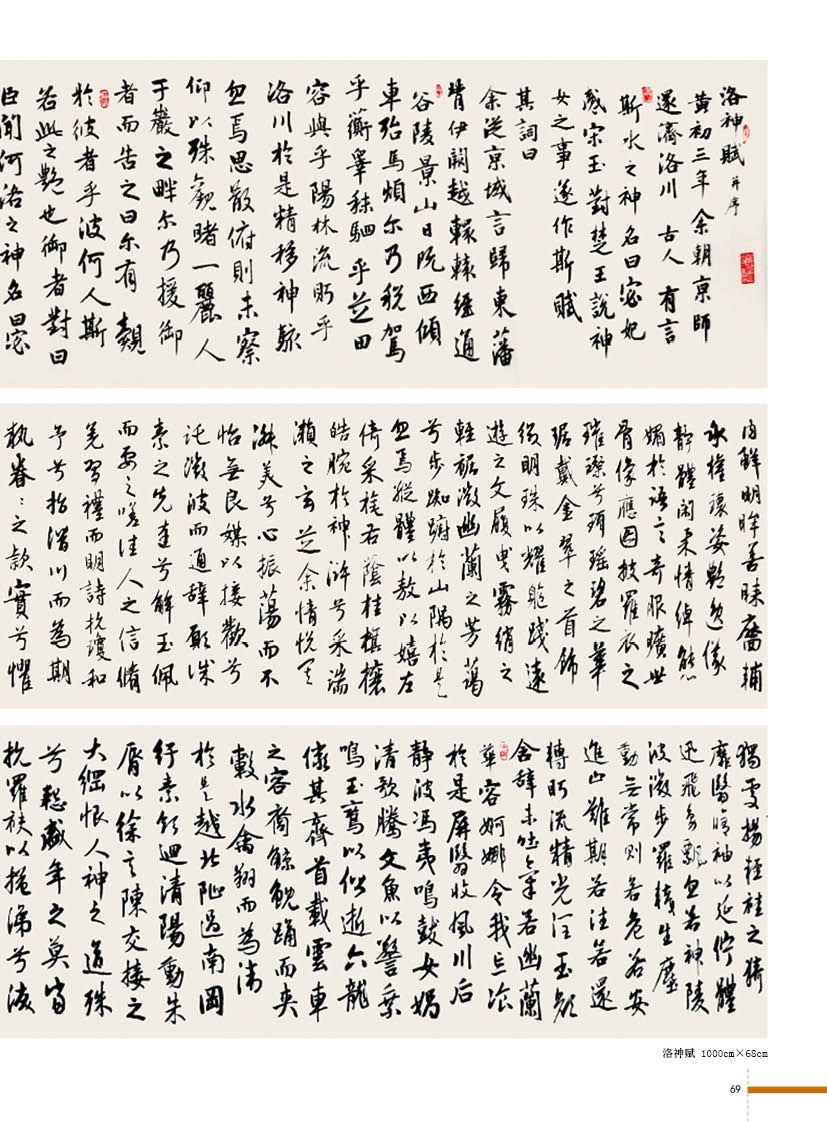 洛神賦 并序
黃初三年余朝京師
還濟洛川古人有言
斯水之神名曰宓妃
感宋玉對楚王說神
女之事遂作斯賦
其詞曰
余從京域言歸東藩
背伊闕越轘轅經通
谷陵景山日既西傾
車殆馬煩尔乃稅駕
乎蘅皋秣駟乎芝田
容與乎陽林流眄乎
洛川於是精移神駭
忽焉思散俯則未察
仰以殊觀睹一麗人
于巖之畔尔乃援御
者而告之曰尔有覿
於彼者乎彼何人斯
若此之艷也御者對曰
臣聞河洛之神名曰宓
內鮮明眸善睞靨輔
承權瓌姿艷逸儀
靜體閑柔情綽態
媚於語言奇服曠世
骨像應圖披羅衣之
璀璨兮珥瑤碧之華
琚戴金翠之首飾
綴明珠以耀軀踐遠
遊之文履曳霧綃之
輕裾微幽蘭之芳藹
兮步踟躕於山隅於是
忽焉縱體以敖以嬉左
倚采旄右蔭桂旗攘
皓腕於神滸兮采湍
瀨之玄芝余情悅其
淑美兮心振蕩而不
怡無良媒以接歡兮
託微波而通辭願誠
素之先達兮解玉佩
而要之嗟佳人之信脩
羌習禮而明詩抗瓊和
予兮指潛川而為期
執眷:之款實兮懼
獨處揚輕袿之猗
靡翳脩袖以延佇體
迅飛鳧飄忽若神陵
波微步羅襪生塵
動無常則若危若安
進止難期若往若還
轉眄流精光潤玉顏
含辭未吐氣若幽蘭
華容婀娜令我忘飡
於是屏翳收風川后
靜波馮夷鳴鼓女媧
清歌騰文魚以警乘
鳴玉鸞以偕逝六龍
儼其齊首載雲車
之容裔鯨鯢踊而夾
轂水禽翔而為衛
於是越北沚過南岡
紆素領迴清陽動朱
脣以徐言陳交接之
大綱恨人神之道殊
兮怨盛年之莫當
抗羅袂以掩涕兮淚
洛神赋 1000cm×68cm
69